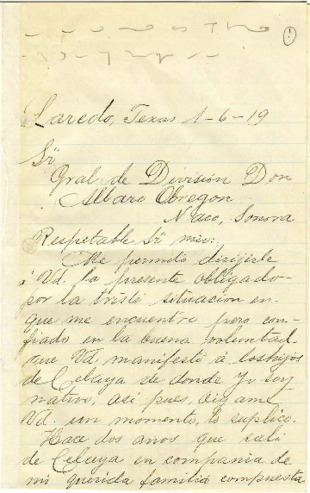 1
Laredo, Texas 1-6-19
Sr
Gral de División Don
Albaro Obregon
Naco, Sonora
Respetable Sr mio:
Me permito dirijirle
á Vd. la presente obligado
por la triste situacion en
que me encuentro pero con-
fiado en la buena voluntad
que Vd. manifestó á los hijos
de Celaya de donde Yo soy
nativo, asi pues, oigame
Vd. un momento, lo suplico.
Hace dos años que salí
de Celaya en compania de
mi querida familia compuesta